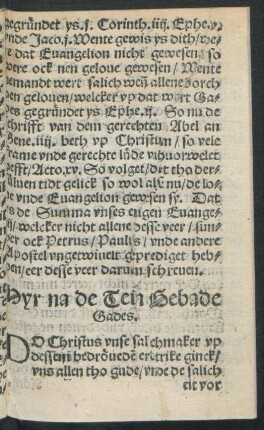 gegründet ys. j. Corinth. iij. Ephe. v.
vnde Jaco. j. Wente gewis ys dith / we-
re dat Euangelion nicht gewesen / so
were ock nen geloue gewesen / Wente
nemandt wert salich wen allene dorch
den gelouen / welcker vp dat wort Ga-
des gegründet ys Ephe. ij. So nu de
Schrifft van dem gerechten Abel an
Gene. iiij. beth vp Christum / so vele
frame vnde gerechte lüde
hefft / Acto. xv. So volget / dat tho der-
suluen tidt gelick so wol als nu / de lo-
ue vnde Euangelion gewesen sy. Dat
ys de Summa vnses eugen Euange-
lij / welcker nicht allene desse veer / sun-
der ock Petrus / Paulus / vnde andere
Apostel vngetwiuelt geprediget heb-
ben / eer desse veer darum schreuen.
Hyr na de Tein Gebade
Gades.
DO Christus vnse salichmaker vp
dessem bedröueden ertrike ginck /
vns allen tho gude / vnde de salich
eit vor